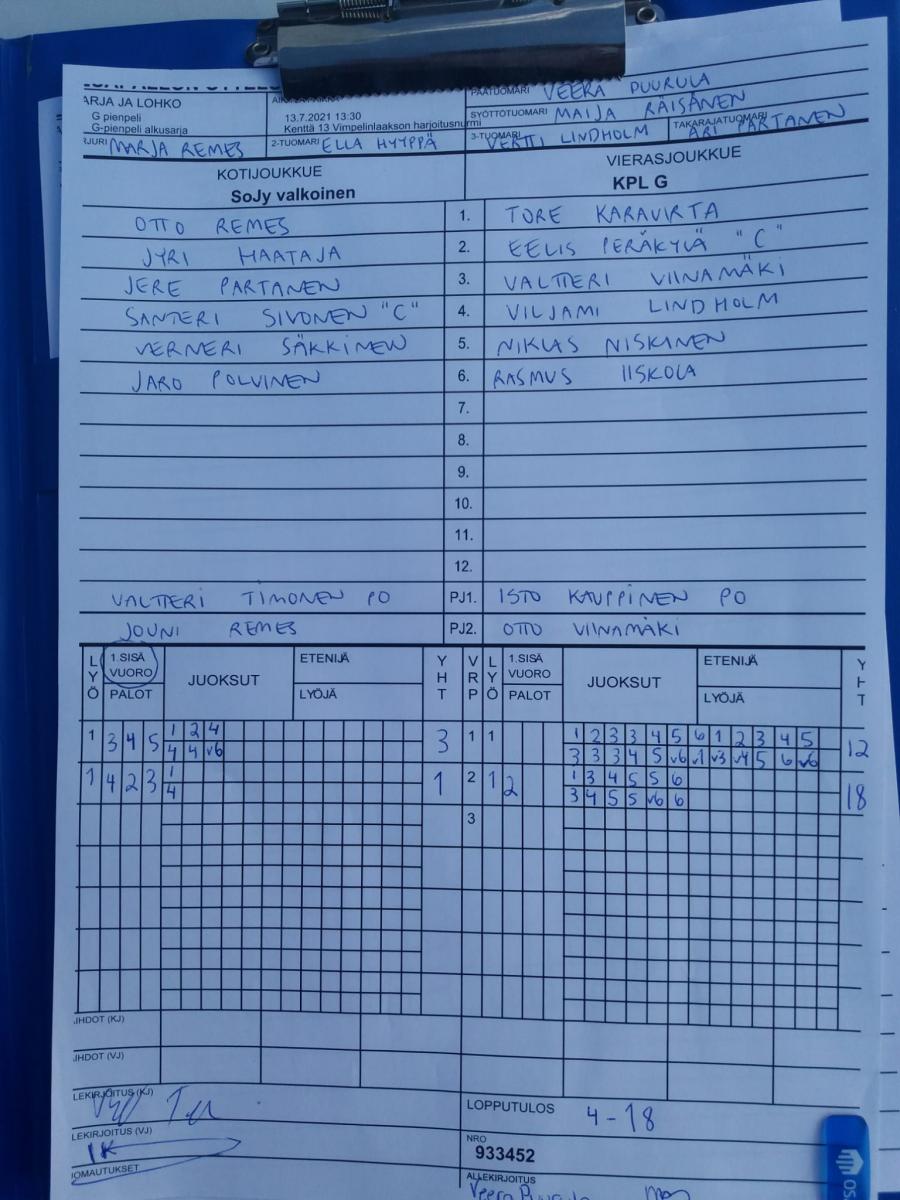 ARJA JA LOHKO
G pienpeli
G-pienpeli alkusarja
13.7.2021 13:30
Kenttä 13 Vimpelinlaakson harjoitusnurmi
PÄÄTUOMARI VEERA PUURULA
SYÖTTÖTUOMARI MAIJA RÄISÄNEN
JURI MARJA REMES 2-TUOMARI ELLA HYYPPÄ 3-TUOMARI VERTTI LINDHOLM TAKARAJATUOMARI ARI PARTANEN
KOTIJOUKKUE VIERASJOUKKUE
SoJy valkoinen KPL G
OTTO REMES 1. TORE KARAVIRTA
JYRI HAATAJA 2. EELIS PERÄKYLÄ "C"
JERE PARTANEN 3. VALTTERI VIINAMÄKI
SANTERI SIVONEN "C" 4. VILJAMI LINDHOLM
VERNERI SÄKKINEN 5. NIKLAS NISKINEN
JARO POLVINEN 6. RASMUS IISKOLA
7.
8.
9.
10.
11.
12.
VALTTERI TIMONEN PO PJ1. ISTO KAUPPINEN PO
JOUNI REMES PJ2. OTTO VIINAMÄKI
LYÖ 1.SISÄ VUORO PALOT JUOKSUT ETENIJÄ LYÖJÄ YHT VRP LYÖ 1.SISÄ VUORO PALOT JUOKSUT ETENIJÄ LYÖJÄ YHT
1 3 4 5 1 2 4 3 1 1 1 2 3 3 4 5 6 1 2 3 4 5 12
4 4 v6 3 3 3 4 5 v6 v1 v3 v4 5 6 v6
1 4 2 3 1 1 2 1 2 1 3 4 5 5 6 18
4 3 4 5 5 v6 6
3
IHDOT (KJ)
IHDOT (VJ)
LEKIRJOITUS (KJ)
LOPPUTULOS 4-18
LEKIRJOITUS (VJ) IK
NRO
933452
IOMAUTUKSET
ALLEKIRJOITUS